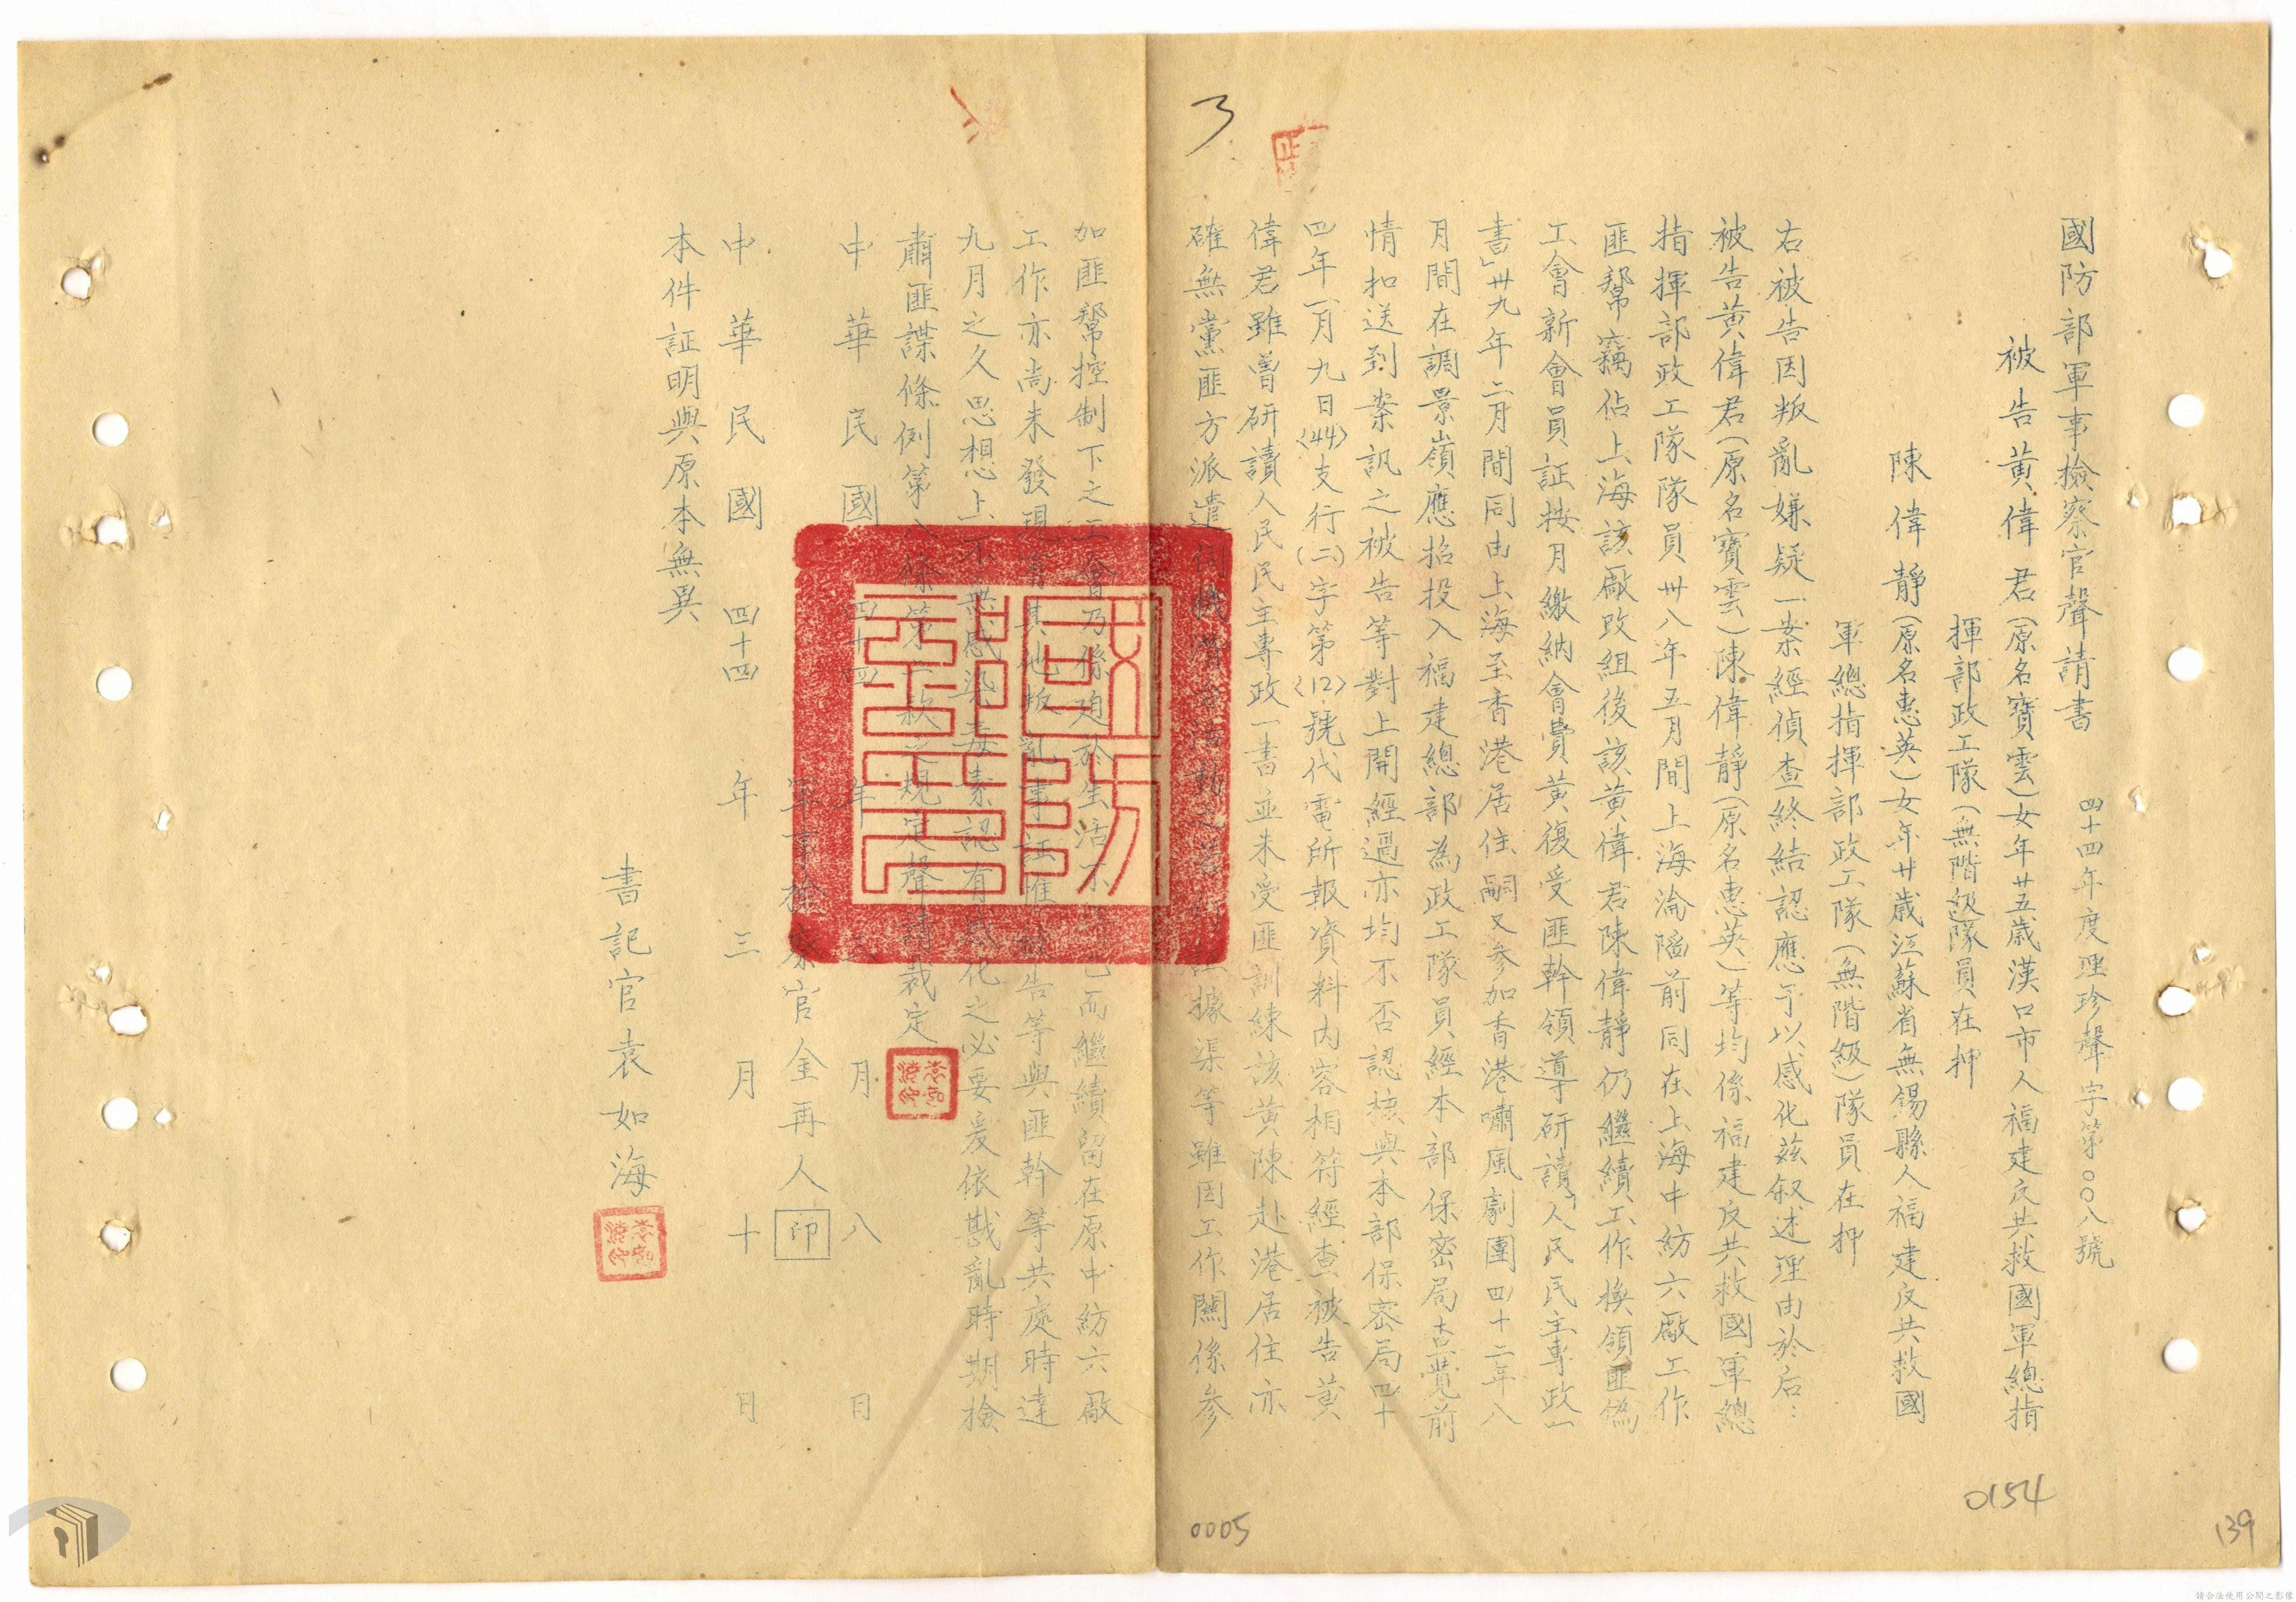 國防部軍事檢察官聲請書 四十四年度理珍聲字第〇〇八號
被告黃偉君(原名寶雲)女年廿五歲漢口市人福建反共救國軍總指
揮部政工隊(無階級)隊員在押
陳偉靜(原名惠英)女年廿歲江蘇省無錫縣人福建反共救國
軍總指揮部政工隊(無階級)隊員在押
右被告因叛亂嫌疑一案經偵查終結認應予以感化茲叙述理由於后:
被告黃偉君(原名寶雲)陳偉靜(原名惠英)等均係福建反共救國軍總
指揮部政工隊隊員卅八年五月間上海淪陷前同在上海中紡六廠工作
匪幫竊佔上海該廠改組後該黃偉君陳偉靜仍繼續工作換領匪偽
工會新會員証按月繳納會費黃復受匪幹領導研讀「人民民主專政一
書」卅九年二月間同由上海至香港居住嗣又參加香港嘯風劇團四十二年八
月間在調景嶺應招投入福建總部為政工隊員經本部保密局查覺前
情扣送到案訊之被告等對上開經過亦均不否認核與本部保密局四十
四年一月九日(44)支行(二)字第(12)號代電所報資料內容相符經查被告黃
偉君雖曾研讀人民民主專政一書並未受匪訓練該黃陳赴港居住亦
確無黨匪方派遣伺機潛台活動之 証據渠等雖因工作關係參
加匪幫控制下之工會乃係廹於生活不得已而繼續留在原中紡六廠
工作亦尚未發現有其他叛亂事証惟被告等與匪幹等共處時達
九月之久思想上不無感染毒素認有感化之必要爰依戡亂時期檢
肅匪諜條例第八條第二款之規定聲請裁定
中華民國四十四年三月八日
軍事檢察官金再人 印
中華民國四十四年三月十日
本件証明與原本無異
書記官袁如海
國防部印
袁如海印
袁如海印
0154
139
0005
請合法使用公開之影像